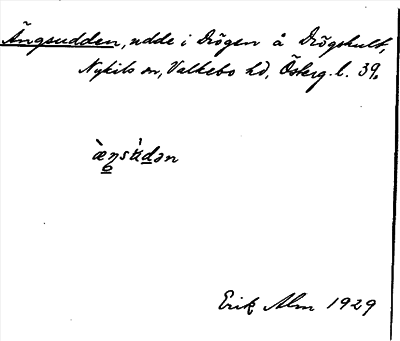 Ängsudden, udde i Drögen å Drögshult,
Nykils sn, Valkebo hd, Österg. l. 39.
Erik Alm 1929